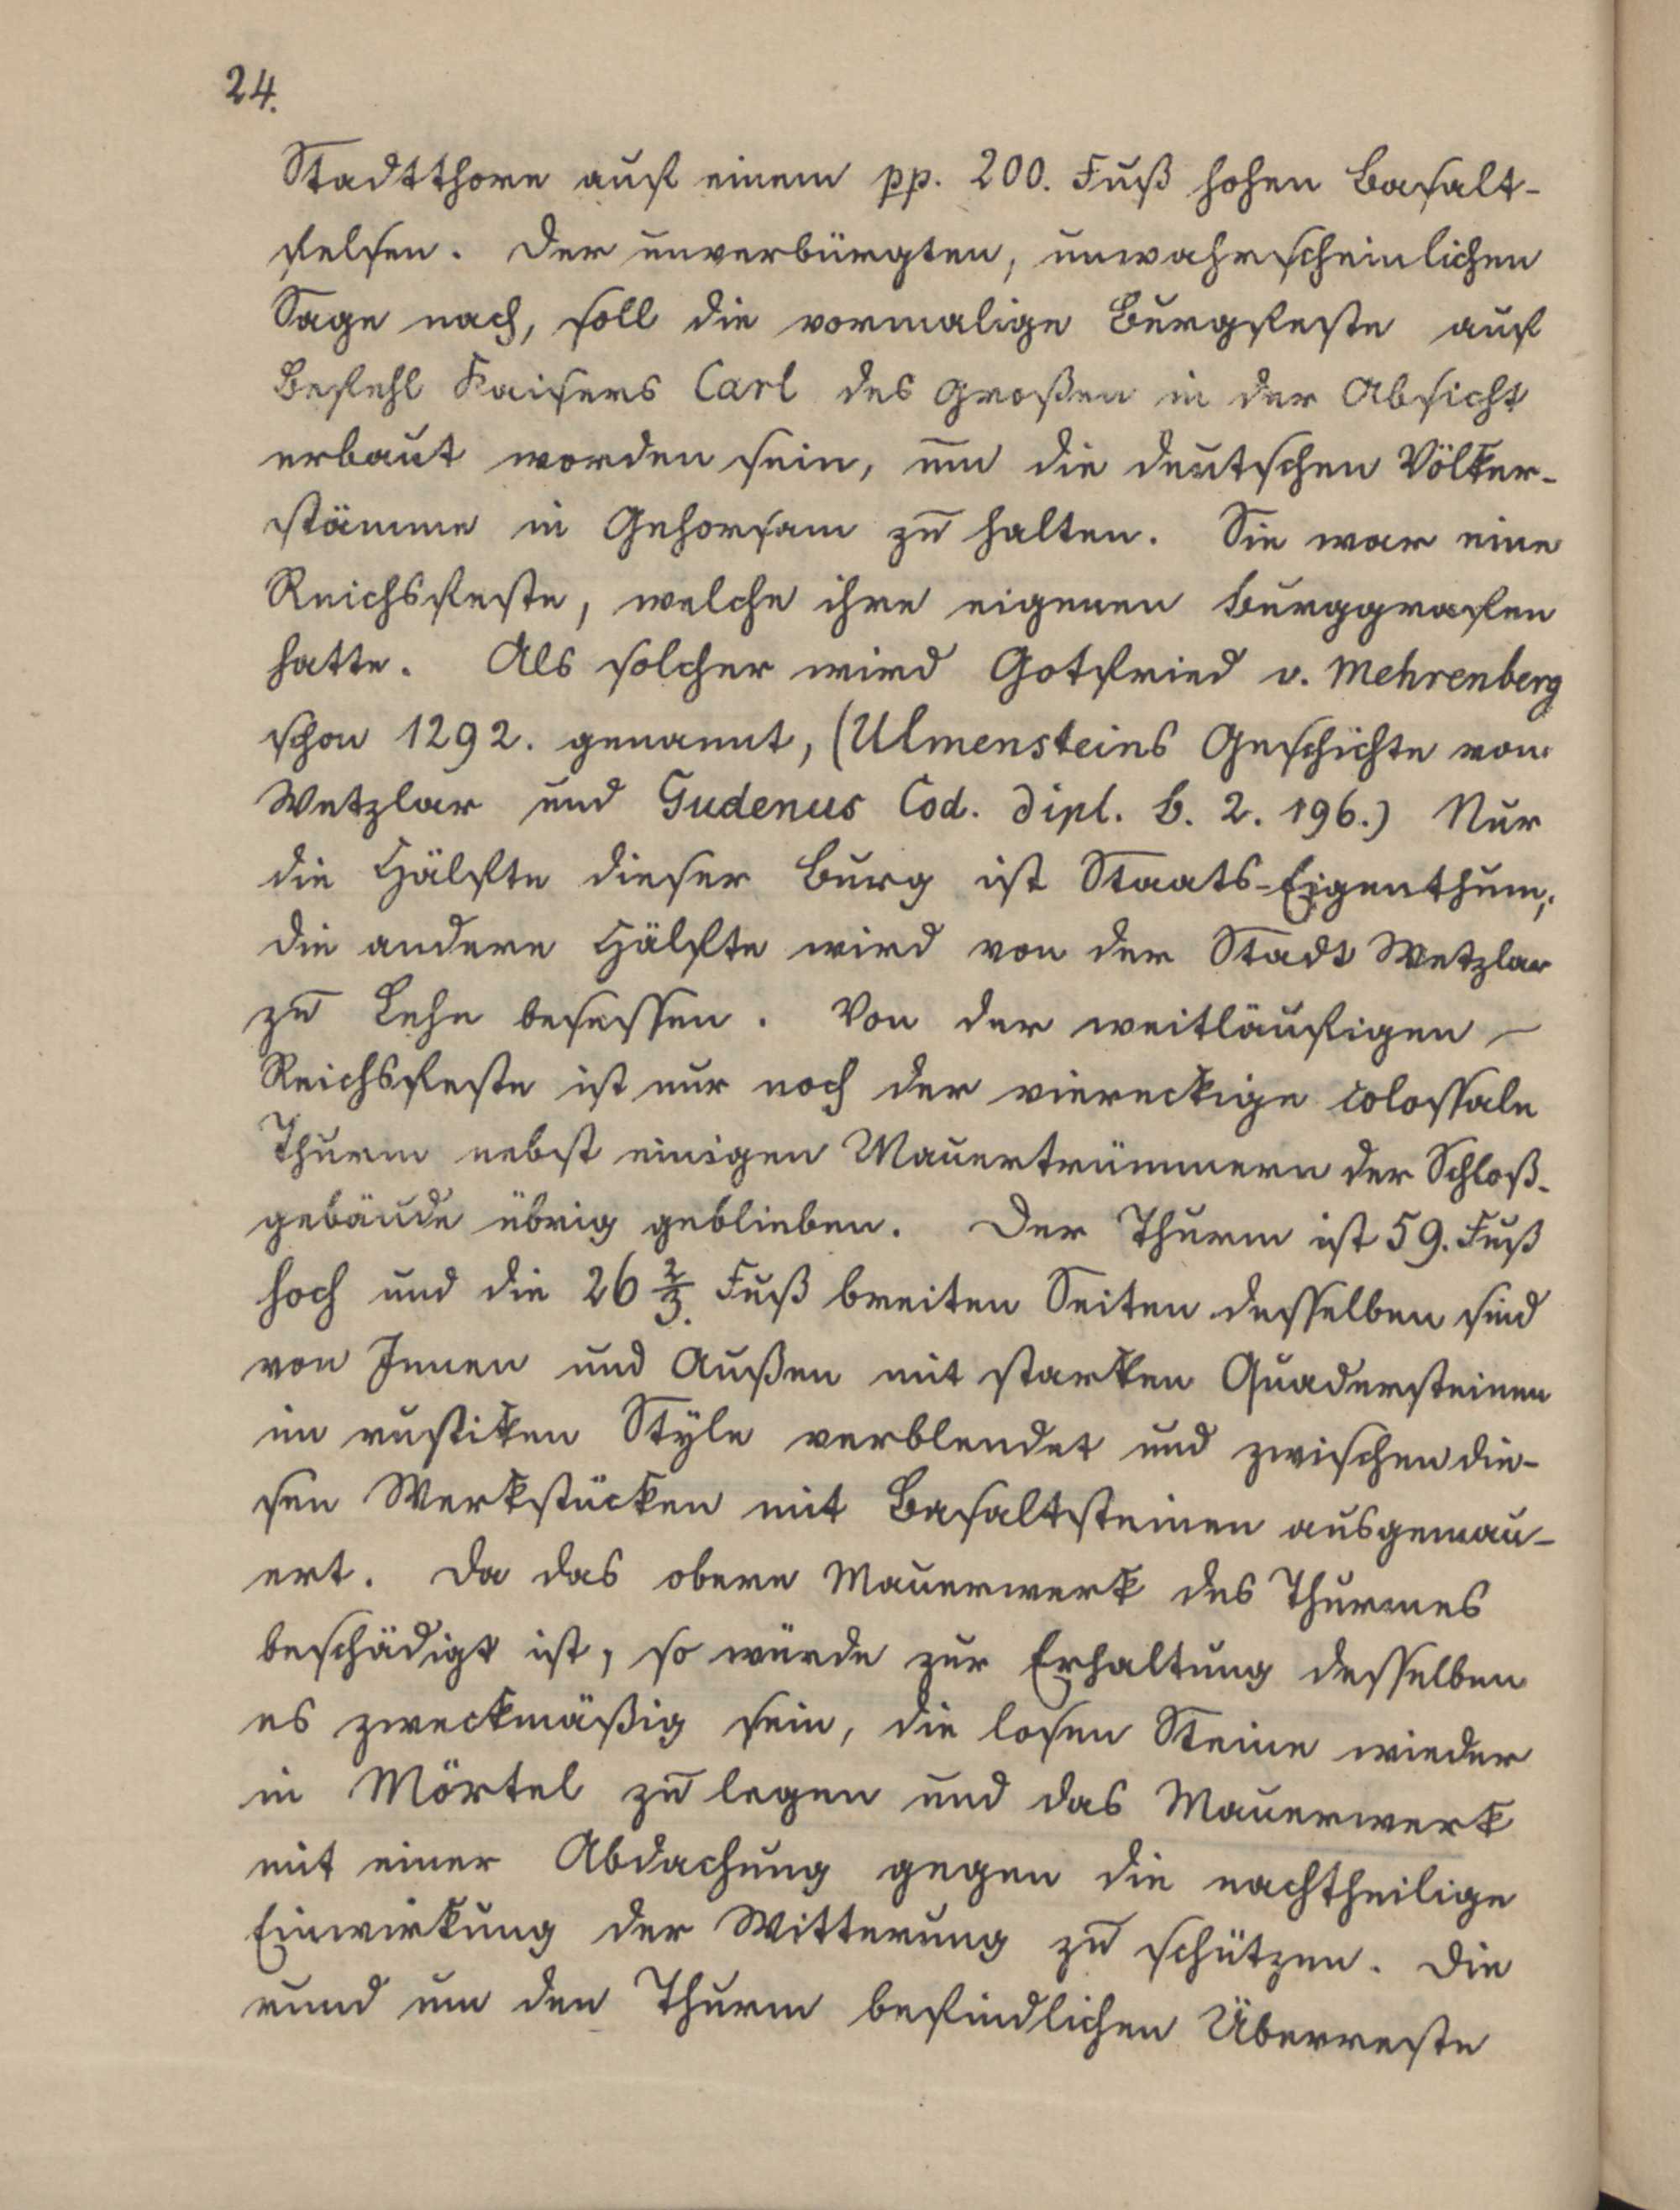 24.
Stadtthore auf einem pp. 200. Fuß hohen Basalt-
felsen. Der unverbürgten, unwahrscheinlichen
Sage nach, soll die vormalige Burgfeste auf
Befehl Kaisers Carl des Großen in der Absicht
erbaut worden sein, um die deutschen Völker-
stämme in Gehorsam zu halten. Sie war eine
Reichsfeste, welche ihre eigenen Burggrafen
hatte. Als solcher wird Gotfried v. Mehrenberg
schon 1292. genannt, (Ulmensteins Geschichte von
Wetzlar und Gudenus Cod. dipl. b. 2. 196.) Nur
die Hälfte dieser Burg ist Staats-Eigenthum;
die andere Hälfte wird von der Stadt Wetzlar
zu Lehn besessen. Von der weitläufigen –
Reichsfeste ist nur noch der viereckige colossale
Thurm nebst einigen Mauertrümmern der Schloß-
gebäude übrig geblieben. Der Thurm ist 59. Fuß
hoch und die 26 2/3. Fuß breiten Seiten desselben sind
von Innen und Außen mit starken Quadersteinen
im rustiken Style verblendet und zwischen die-
sen Werkstücken mit Basaltsteinen ausgemau-
ert. Da das obere Mauerwerk des Thurmes
beschädigt ist, so würde zur Erhaltung desselben
es zweckmäßig sein, die losen Steine wieder
in Mörtel zu legen und das Mauerwerk
mit einer Abdachung gegen die nachtheilige
Einwirkung der Witterung zu schützen. Die
rund um den Thurm befindlichen Überreste